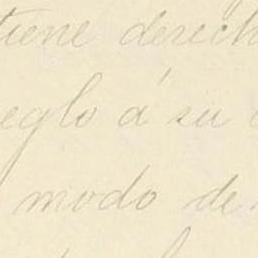 tiene derech
eglo á su
modo de